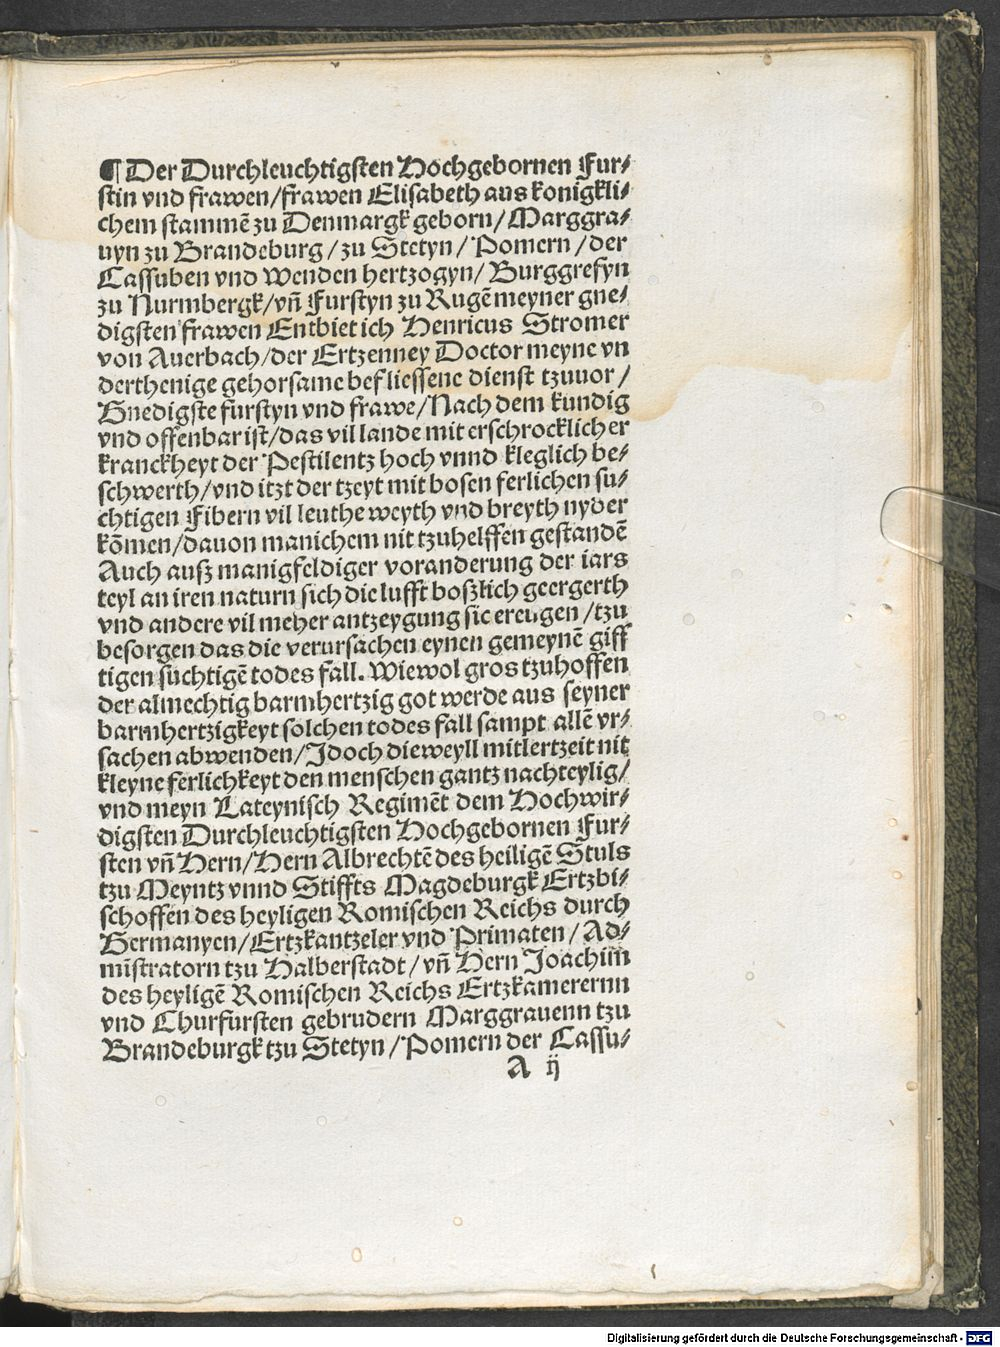 ¶ Der Durchleuchtigsten Hochgebornen Fur⸗
stin vnd frawen/frawen Elisabeth aus konigkli⸗
chem stammē zu Denmargk geborn/Marggra⸗
uyn zu Brandeburg/zu Stetyn/Pomern/der
Cassuben vnd Wenden hertzogyn/Burggrefyn
zu Nurmbergk/vn̄ Furstyn zu Rugē meyner gne⸗
digsten frawen Entbiet ich Henricus Stromer
von Auerbach/der Ertzenney Doctor meyne vn
derthenige gehorsame befliessene dienst tzuuor/
Gnedigste furstyn vnd frawe/Nach dem kundig
vnd offenbar ist/das vil lande mit erschrocklicher
kranckheyt der Pestilentz hoch vnnd kleglich be⸗
schwerth/vnd itzt der tzeyt mit bosen ferlichen su⸗
chtigen Fibern vil leuthe weyth vnd breyth nyder
kōmen/dauon manichem nit tzuhelffen gestandē
Auch ausz manigfeldiger voranderung der iars
teyl an iren naturn sich die lufft boszlich geergerth
vnd andere vil meher antzeygung sic ereugen/tzu
besorgen das die verursachen eynen gemeynē giff
tigen suchtigē todes fall. Wiewol gros tzuhoffen
der almechtig barmhertzig got werde aus seyner
barmhertzigkeyt solchen todes fall sampt allē vr⸗
sachen abwenden/Jdoch dieweyll mitlertzeit nit
kleyne ferlichkeyt den menschen gantz nachteylig/
vnd meyn Lateynisch Regimēt dem Hochwir⸗
digsten Durchleuchtigsten Hochgebornen Fur⸗
sten vn̄ Hern/Hern Albrechtē des heiligē Stuls
tzu Meyntz vnnd Stiffts Magdeburgk Ertzbi⸗
schoffen des heyligen Romischen Reichs durch
Germanyen/Ertzkantzeler vnd Primaten/Ad⸗
mīstratorn tzu Halberstadt/vn̄ Hern Joachim
des heyligē Romischen Reichs Ertzkamerernn
vnd Churfursten gebrudern Marggrauenn tzu
Brandeburgk tzu Stetyn/Pomern der Cassu⸗
A ij
Digitalisierung gefördert durch die Deutsche Forschungsgemeinschaft - DFG